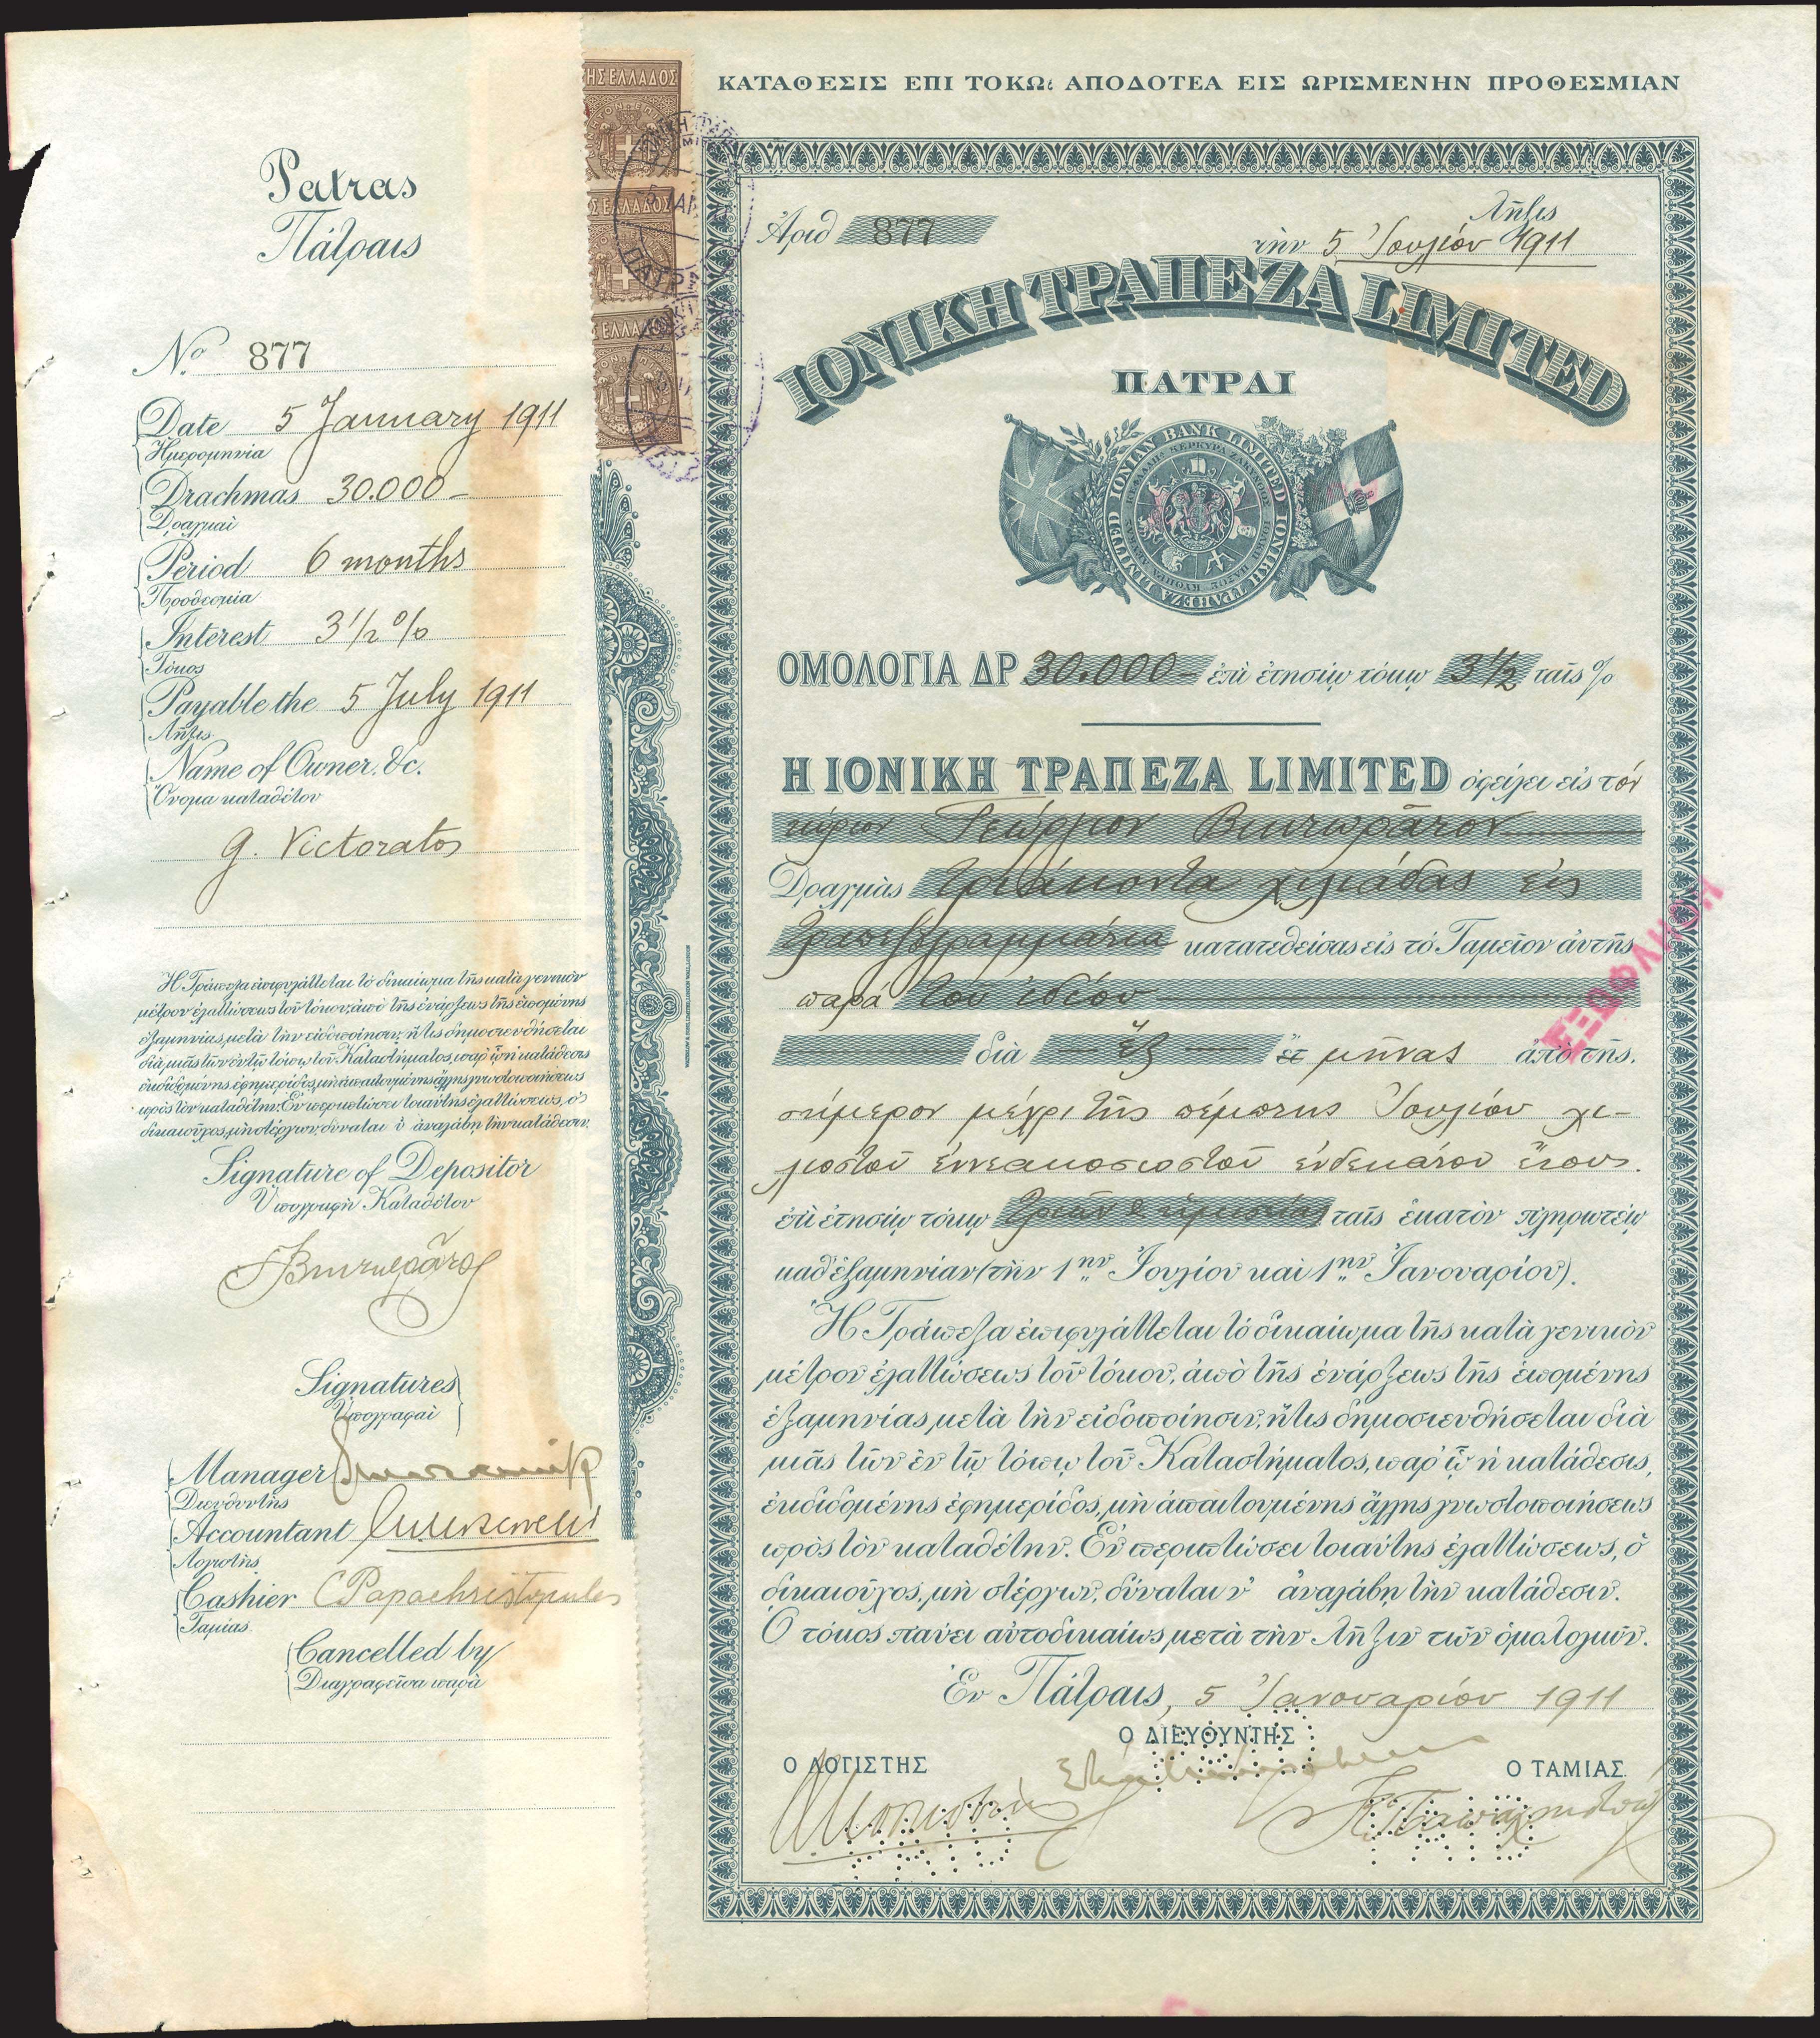 Patras
Πάτραις
Nº 877
Date 5 January 1911
Ἡμερομηνία
Drachmas 30.000 –
Δραχμαὶ
Period 6 months
Προθεσμία
Interest 3 1/2 %
Τόκος
Payable the 5 July 1911
Λῆξις
Name of Owner. &c.
Ὄνομα καταθέτου
G. Victoratos
Ἡ Τράπεζα ἐπιφυλάττεται τὸ δικαίωμα τῆς κατὰ γενικὸν
μέτρον ἐλαττώσεως τοῦ τόκου, ἀπὸ τῆς ἐνάρξεως τῆς ἑπομένης
ἑξαμηνίας, μετὰ τὴν εἰδοποίησιν, ἥτις δημοσιευθήσεται
διὰ μιᾶς τῶν ἐν τῷ τόπῳ τοῦ Καταστήματος, παρ' ᾧ ἡ κατάθεσις
ἐκδιδομένης ἐφημερίδος, μὴ ἀπαιτουμένης ἄλλης γνωστοποιήσεως
πρὸς τὸν καταθέτην. Ἐν περιπτώσει τοιαύτης ἐλαττώσεως, ὁ
δικαιοῦχος, μὴ στέργων, δύναται ν' ἀναλάβῃ τὴν κατάθεσιν.
Signature of Depositor
Ὑπογραφὴ Καταθέτου
Βικτωρᾶτος
Signatures
Ὑπογραφαὶ
Manager
Διευθυντὴς
Accountant
Λογιστὴς
Cashier C Papachristopoulos
Ταμίας
Cancelled by
Διαγραφεῖσα παρὰ
ΗΣ ΕΛΛΑΔΟΣ
Σ ΕΛΛΑΔΟΣ
Σ ΕΛΛΑΔ
ΠΑΤΡΑ
ΚΑΤΑΘΕΣΙΣ ΕΠΙ ΤΟΚΩι ΑΠΟΔΟΤΕΑ ΕΙΣ ΩΡΙΣΜΕΝΗΝ ΠΡΟΘΕΣΜΙΑΝ
Ἀριθ 877
Λῆξις
τὴν 5 Ἰουλίου 1911
ΙΟΝΙΚΗ ΤΡΑΠΕΖΑ LIMITED
ΠΑΤΡΑΙ
IONIAN BANK LIMITED ΙΟΝΙΚΗ ΤΡΑΠΕΖΑ LIMITED
ΚΕΡΚΥΡΑ ΖΑΚΥΝΘΟΣ ΙΘΑΚΗ ΠΑΞΟΣ ΚΥΘΗΡΑ ΛΕΥΚΑΣ ΚΕΦΑΛΛΗΝ
ΟΜΟΛΟΓΙΑ ΔΡ 30.000 – ἐπὶ ἐτησίῳ τόκῳ 3 1/2 ταῖς %
Η ΙΟΝΙΚΗ ΤΡΑΠΕΖΑ LIMITED ὀφείλει εἰς τὸν
κύριον Γεώργιον Βικτωρᾶτον
Δραχμὰς τριάκοντα χιλιάδας εἰς
τραπεζογραμμάτια κατατεθείσας εἰς τὸ Ταμεῖον αὐτῆς
παρὰ τοῦ ἰδίου
διὰ ἓξ ἔτ μῆνας ἀπὸ τῆς
σήμερον μέχρι τῆς πέμπτης Ἰουλίου χι-
λιοστοῦ ἐννεακοσιοστοῦ ἑνδεκάτου ἔτους.
ἐπὶ ἐτησίῳ τόκῳ τριῶν & ἡμισείας ταῖς ἑκατὸν πληρωτέῳ
καθ' ἑξαμηνίαν (τὴν 1ην Ἰουλίου καὶ 1ην Ἰανουαρίου).
Ἡ Τράπεζα ἐπιφυλάττεται τὸ δικαίωμα τῆς κατὰ γενικὸν
μέτρον ἐλαττώσεως τοῦ τόκου, ἀπὸ τῆς ἐνάρξεως τῆς ἑπομένης
ἑξαμηνίας, μετὰ τὴν εἰδοποίησιν, ἥτις δημοσιευθήσεται διὰ
μιᾶς τῶν ἐν τῷ τόπῳ τοῦ Καταστήματος, παρ' ᾧ ἡ κατάθεσις,
ἐκδιδομένης ἐφημερίδος, μὴ ἀπαιτουμένης ἄλλης γνωστοποιήσεως
πρὸς τὸν καταθέτην. Ἐν περιπτώσει τοιαύτης ἐλαττώσεως, ὁ
δικαιοῦχος, μὴ στέργων, δύναται ν' ἀναλάβῃ τὴν κατάθεσιν.
Ὁ τόκος παύει αὐτοδικαίως, μετὰ τὴν λῆξιν τῶν ὁμολογιῶν.
Ἐν Πάτραις, 5 Ἰανουαρίου 1911
Ο ΔΙΕΥΘΥΝΤΗΣ
Ο ΛΟΓΙΣΤΗΣ
Ο ΤΑΜΙΑΣ
ΕΞΩΦΛΗΘΗ